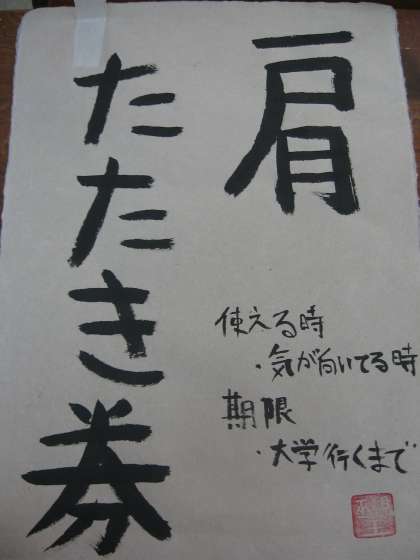 肩
たたき券
使える時
・気が向いてる時
期限
・大学行くまで